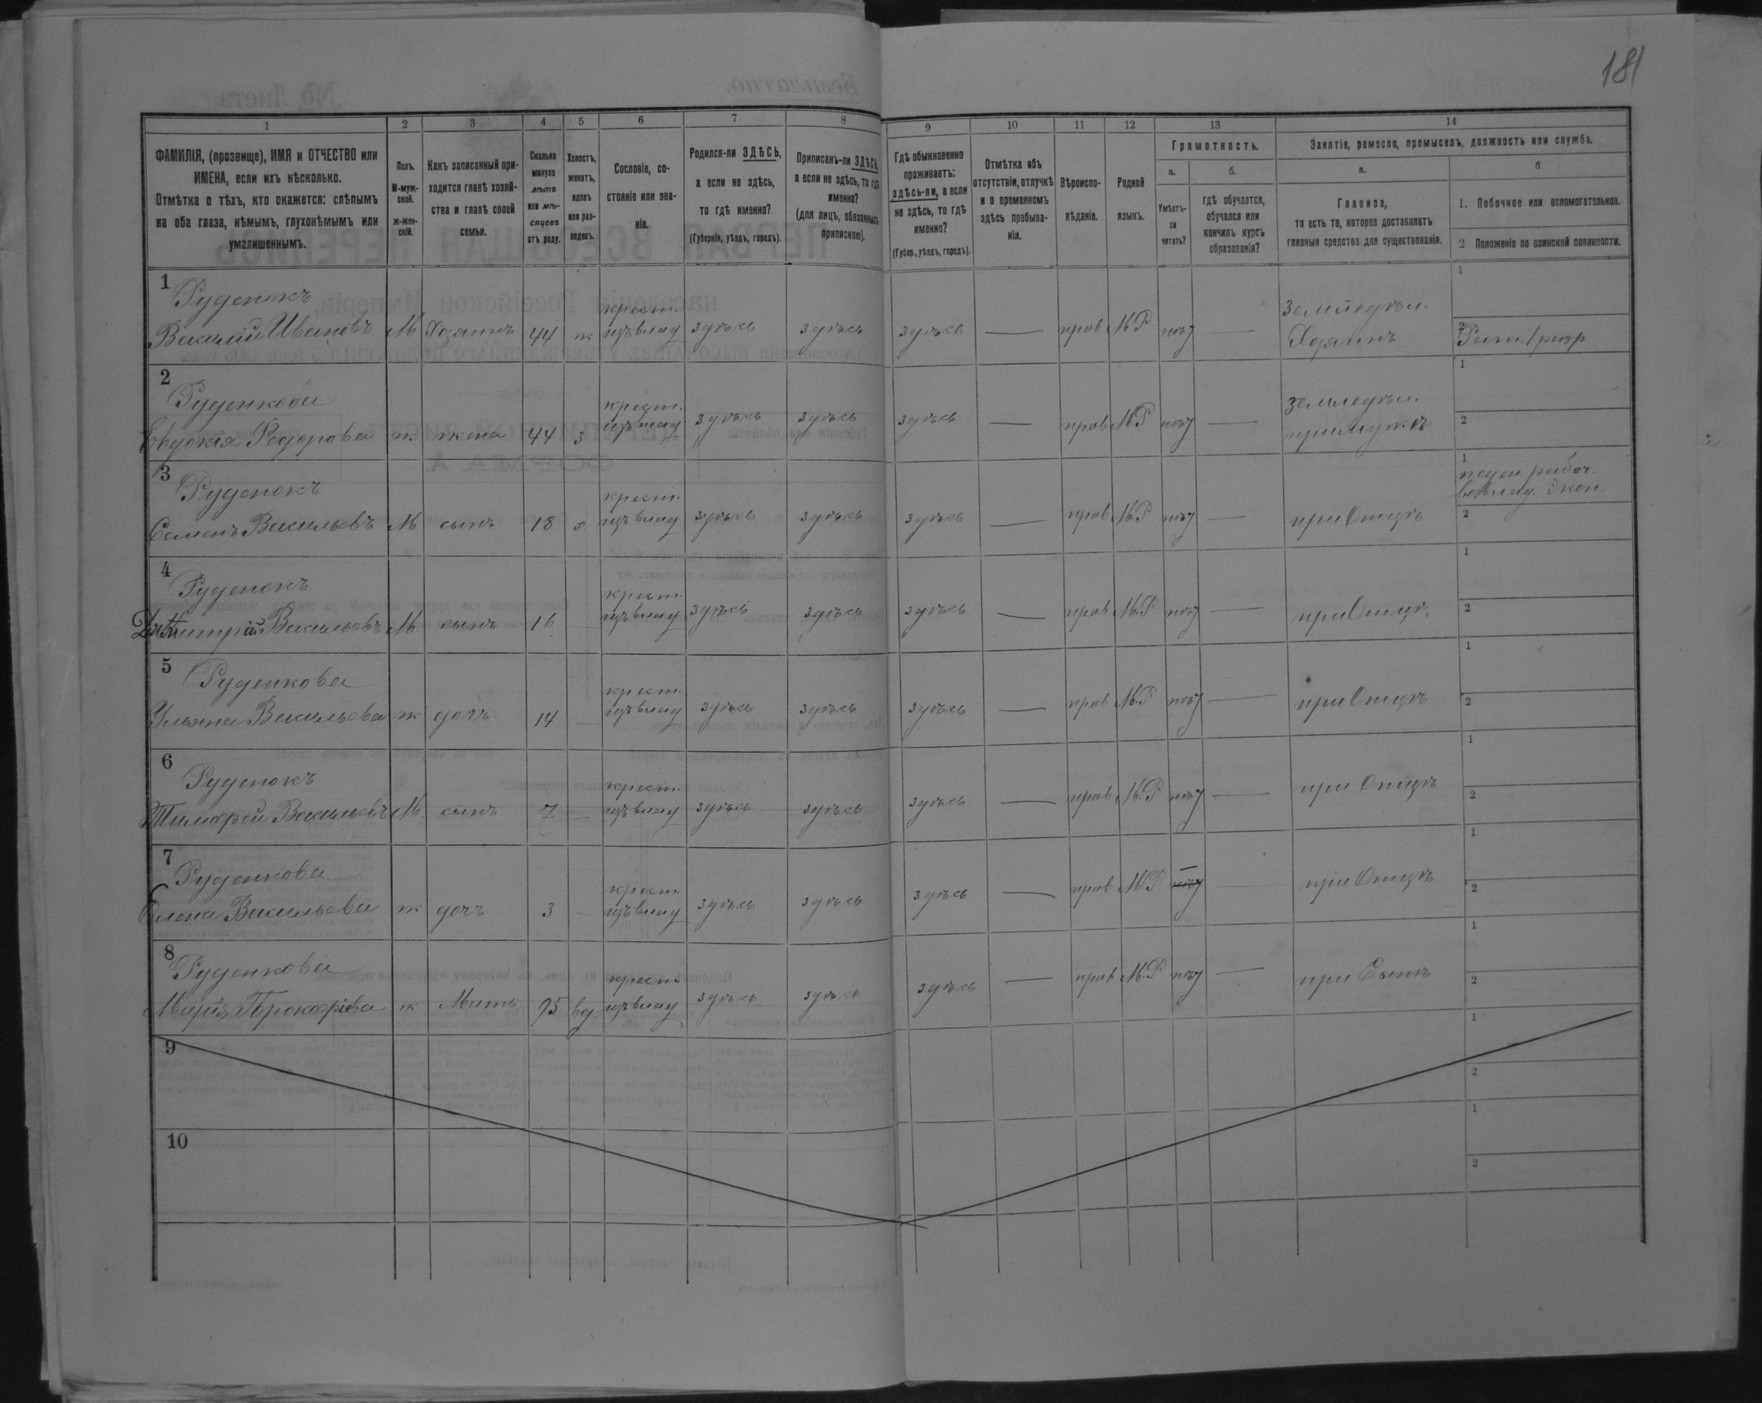 181
1 2 3 4 5 6 7 8 9 10 11 12 13 14
ФАМИЛІЯ, (прозвище), ИМЯ и ОТЧЕСТВО или
ИМЕНА, если ихъ нѣсколько.
Отмѣтка о тѣхъ, кто окажется: слѣпымъ
на оба глаза, нѣмымъ, глухонѣмымъ или
умалишеннымъ.
Полъ.
М-муж-
ской.
ж-жен-
скій.
Какъ записанный при-
ходится главѣ хозяй-
ства и главѣ своей
семьи.
Сколько
минуло
лѣтъ
или мѣ-
сяцевъ
отъ роду.
Холостъ,
женатъ,
вдовъ
или раз-
веденъ.
Сословіе, со-
стояніе или зва-
ніе.
Родился-ли ЗДѢСЬ,
а если не здѣсь,
то гдѣ именно?
(Губернія, уѣздъ, городъ).
Приписанъ-ли ЗДѢСЬ,
а если не здѣсь, то гдѣ
именно?
(для лицъ, обязанныхъ
припискою).
Гдѣ обыкновенно
проживаетъ:
здѣсь-ли, а если
не здѣсь, то гдѣ
именно?
(Губер., уѣздъ, городъ).
Отмѣтка объ
отсутствіи, отлучкѣ
и о временномъ
здѣсь пребыва-
ніи.
Вѣроиспо-
вѣданіе.
Родной
языкъ.
Грамотность.
а.
Умѣетъ-
ли
читать?
б.
гдѣ обучается,
обучался или
кончилъ курсъ
образованія?
Занятіе, ремесло, промыселъ, должность или служба.
а.
Главное,
то есть то, которое доставляетъ
главныя средства для существованія.
б
1. Побочное или вспомогательное.
2 Положеніе по воинской повинности.
1
Руденокъ
Василій Ивановъ М Хозяинъ 44 ж
крест.
изъ влад здѣсь здѣсь здѣсь — прав М.Р —
Земледѣл.
Хозяинъ
1
2
2
Руденкова
Евдокія Федорова ж жена 44 з
крест.
изъ влад здѣсь здѣсь здѣсь — прав М.Р —
земледѣл.
при мужѣ
1
2
3
Руденокъ
Семенъ Васильевъ М сынъ 18 х
крест.
изъ влад здѣсь здѣсь здѣсь — прав М.Р —
при Отцѣ
1
2
4
Руденокъ
Дмитрій Васильевъ М сынъ 16 —
крест.
изъ влад здѣсь здѣсь здѣсь — прав М.Р —
при Отцѣ
1
2
5
Руденкова
Ульяна Васильева ж дочь 14 —
крест.
изъ влад здѣсь здѣсь здѣсь — прав М.Р —
при Отцѣ
1
2
6
Руденокъ
Тимофей Васильевъ М сынъ 7 —
крест.
изъ влад здѣсь здѣсь здѣсь — прав М.Р —
при Отцѣ
1
2
7
Руденкова
Елена Васильева ж дочь 3 —
крест.
изъ влад здѣсь здѣсь здѣсь — прав М.Р —
при Отцѣ
1
2
8
Руденкова
Марія ж Мать вд
крест
изъ влад здѣсь здѣсь здѣсь — прав М.Р —
при Сынѣ
1
2
9
1
2
10
1
2